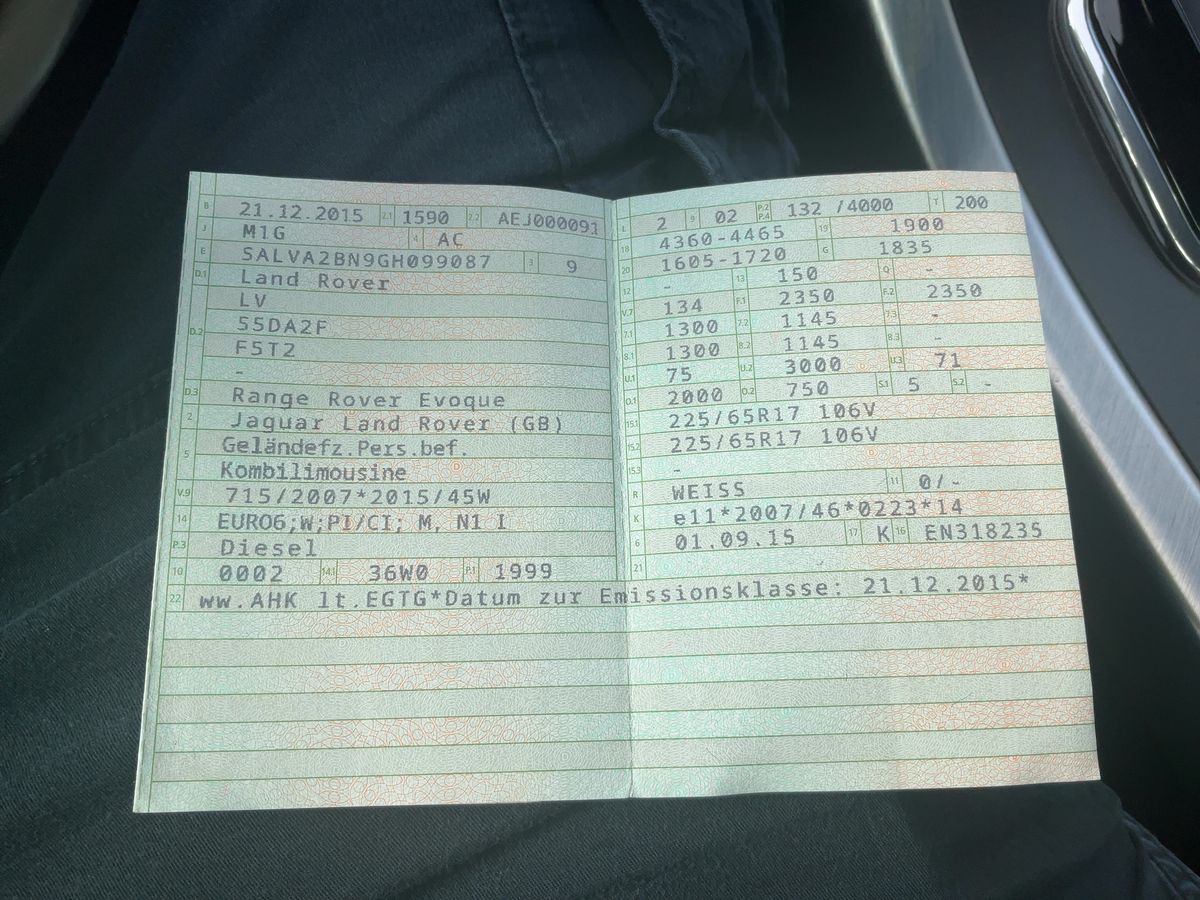 B 21.12.2015 2.1 1590 2.2 AEJ000091
J M1G 4 AC
E SALVA2BN9GH099087 3 9
D.1 Land Rover
LV
D.2 55DA2F
F5T2
-
D.3 Range Rover Evoque
2 Jaguar Land Rover (GB)
5 Geländefz.Pers.bef.
Kombilimousine
V.9 715/2007*2015/45W
14 EURO6;W;PI/CI; M, N1 I
P.3 Diesel
10 0002 14.1 36W0 P.1 1999
L 2 9 02 P.2 P.4 132 /4000 T 200
18 4360-4465 19 1900
20 1605-1720 G 1835
12 - 13 150 Q -
V.7 134 F.1 2350 F.2 2350
7.1 1300 7.2 1145 7.3 -
8.1 1300 8.2 1145 8.3 -
U.1 75 U.2 3000 U.3 71
O.1 2000 O.2 750 S.1 5 S.2 -
15.1 225/65R17 106V
15.2 225/65R17 106V
15.3 -
R WEISS 11 0/-
K e11*2007/46*0223*14
6 01.09.15 17 K 16 EN318235
21
22 ww.AHK lt.EGTG*Datum zur Emissionsklasse: 21.12.2015*